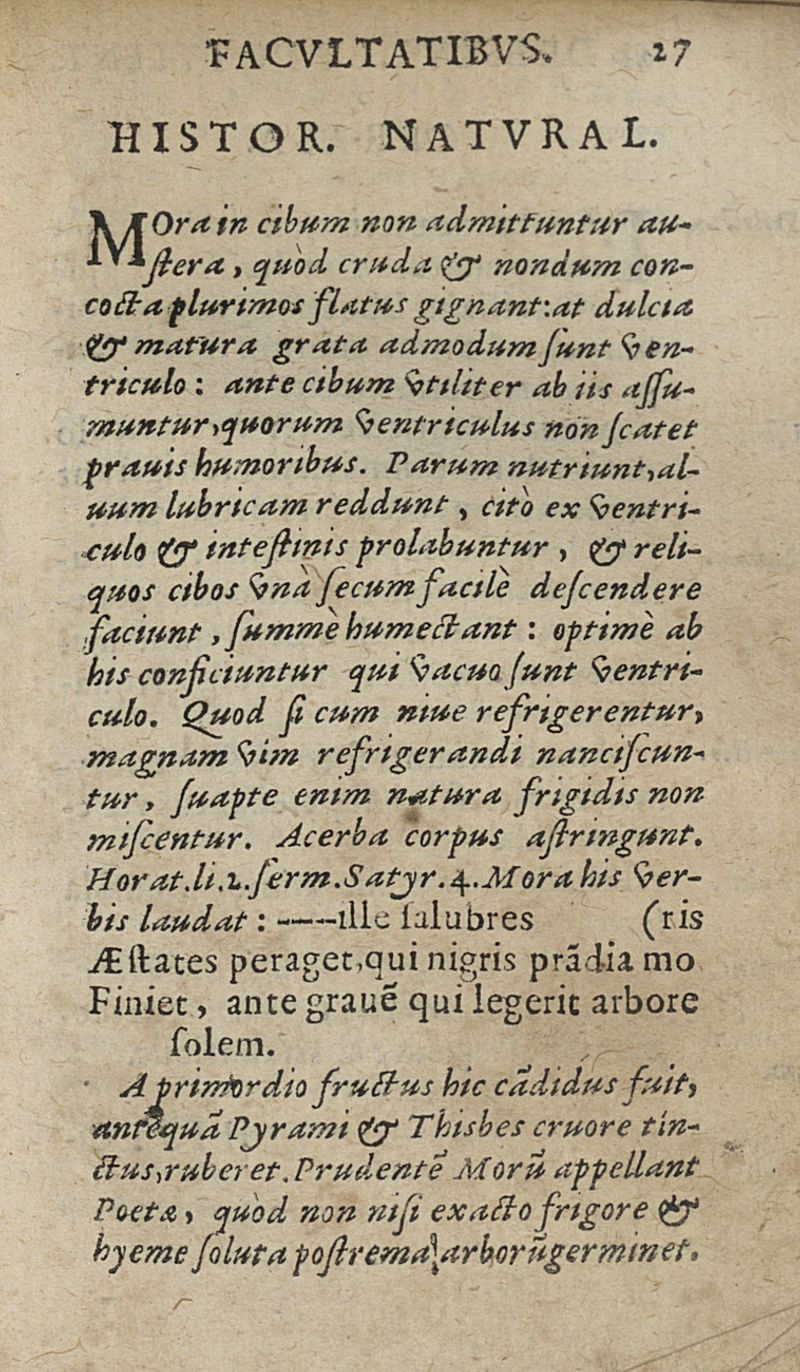 FACVLTATIBVS. 27
HISTOR. NATVRAL.
MOra in cibum non admittuntur au-
ſtera, quòd cruda & nondum con-
cocta plurimos flatus gignant: at dulcia
& matura grata admodum ſunt ven-
triculo: ante cibum vtiliter ab iis aſſu-
muntur, quorum ventriculus non ſcatet
prauis humoribus. Parum nutriunt, al-
uum lubricam reddunt, citò ex ventri-
culo & inteſtinis prolabuntur, & reli-
quos cibos vnà ſecum facilè deſcendere
faciunt, ſummè humectant: optimè ab
his conficiuntur qui vacuo ſunt ventri-
culo. Quod ſi cum niue refrigerentur,
magnam vim refrigerandi nanciſcun-
tur, ſuapte enim natura frigidis non
miſcentur. Acerba corpus aſtringunt.
Horat. li. 2. ſerm. Satyr. 4. Mora his ver-
bis laudat: ----ille ſalubres (ris
Æſtates peraget, qui nigris prãdia mo
Finiet, ante grauẽ qui legerit arbore
ſolem.
A primordio fructus hic cãdidus fuit,
antequã Pyrami & Thisbes cruore tin-
ctus, ruberet. Prudentẽ Morũ appellant
Poetæ, quòd non niſi exacto frigore &
hyeme ſoluta poſtrema arborũ germinet.